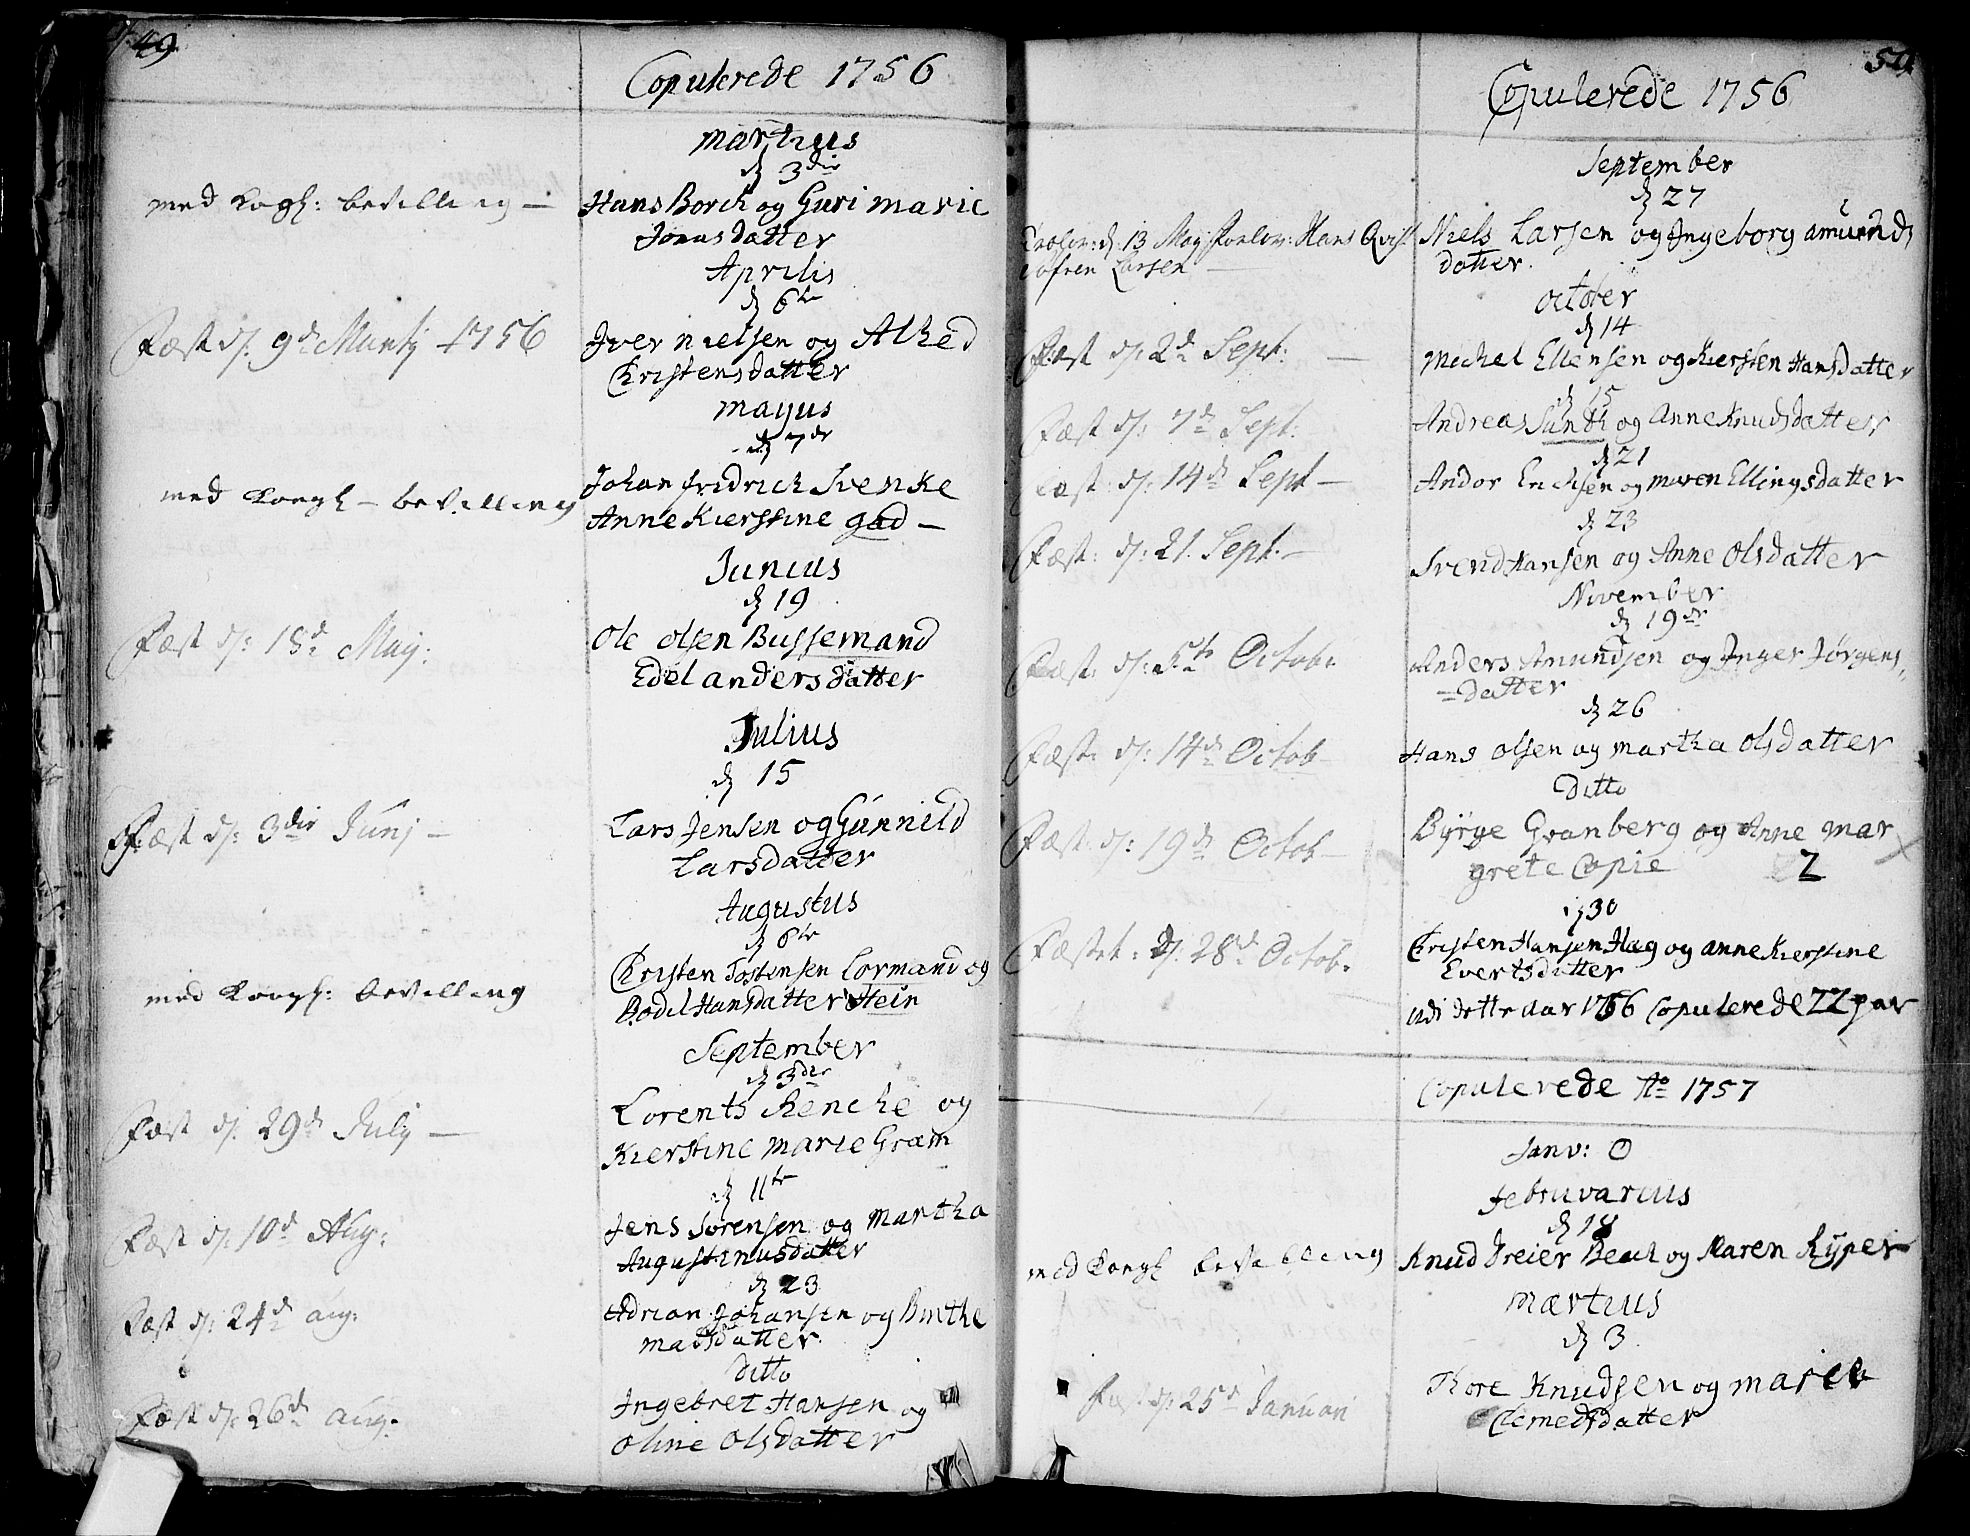 49
Copulerede 1756
martius
d 3die
med Kongl: bevilling —
Hans Borch og Guri marie
Jonasdatter
Aprilis
d 6te
Fæst d: 9de Martij 1756
Iver nielsen og Alhed
Christensdatter
mayus
d 7de
med Kongl — bevilling
Johan fridrich Svenke
Anne Kierstine gad —
Junius
d 19
Fæst d: 18de Maij:
Ole olsen Bussemand
Edel andersdatter
Julius
d 15
Fæst d: 3die Junj —
Lars Jensen og Gunnild
Larsdatter
Augustus
d 6te
Christen Tostensen Lormand og
med Kongl: bevilling
Bodel Hansdatter Stein
September
d 3die
Fæst d: 29de Julij —
Lorents Rencke og
Kierstine marie Gram
d 11te
Fæst d: 10de Aug:
Jens Sørensen og martha
Augustinusdatter
d 23
Fæst d: 24de aug:
Adrian Johansen og Birthe
madsdatter
ditto
Fæst d: 26de aug:
Ingebret Hansen og
Oline Olsdatter
50
Copulerede 1756
September
d 27
Trolov: d. 13 Maij forlov: Hans Qvist
Søfren Larsen —
Niels Larsen og Ingeborg amunds
datter
october
d 14
Fæst d: 2de Sept: —
michel Ellensen og Kiersten Hansdatter
d 15
Fæst d: 7de Sept:
Andreas Sundt og Anne Knudsdatter
d 21
Fæst: d: 14de Sept —
Andor Erichsen og maren Ellingsdatter
d 23
Fæst: d: 21. Sept. —
Svend Hansen og Anne Olsdatter
November
d 19de
Fæst: d: 5te Octobr.
Anders Amundsen og Inger Jørgens
=datter
d 26
Fæst: d: 14de Octob —
Hans olsen og martha olsdatter
Ditto
Fæst: d: 19de Octob —
Byrge Granberg og Anne mar
grete Copie 2
d 30
Fæstet: d: 28de Octob.
Christen Hansen Hag og anne Kierstine
Evertsdatter
udi dette aar 1756 Copulerede 22 par
Copulerede Ao 1757
Janv: 0
februvarius
d 18
med Kongl bevilling
Knud Dreier Bech og Maren Ryper
martius
d 3
Fæst d: 25de Januari
Thore Knudsen og marie
Clemedsdatter